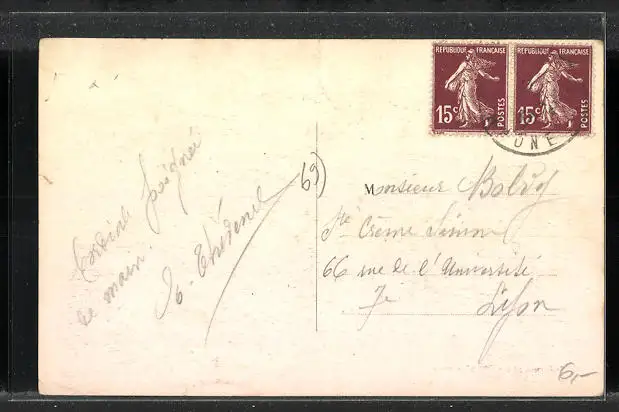 REPUBLIQUE FRANÇAISE
15c POSTES
REPUBLIQUE FRANÇAISE
15c POSTES
ONE
69)
Monsieur
Crème
66 rue de l'Université
7e
Lyon
Cordiale poignée
de main
6,-